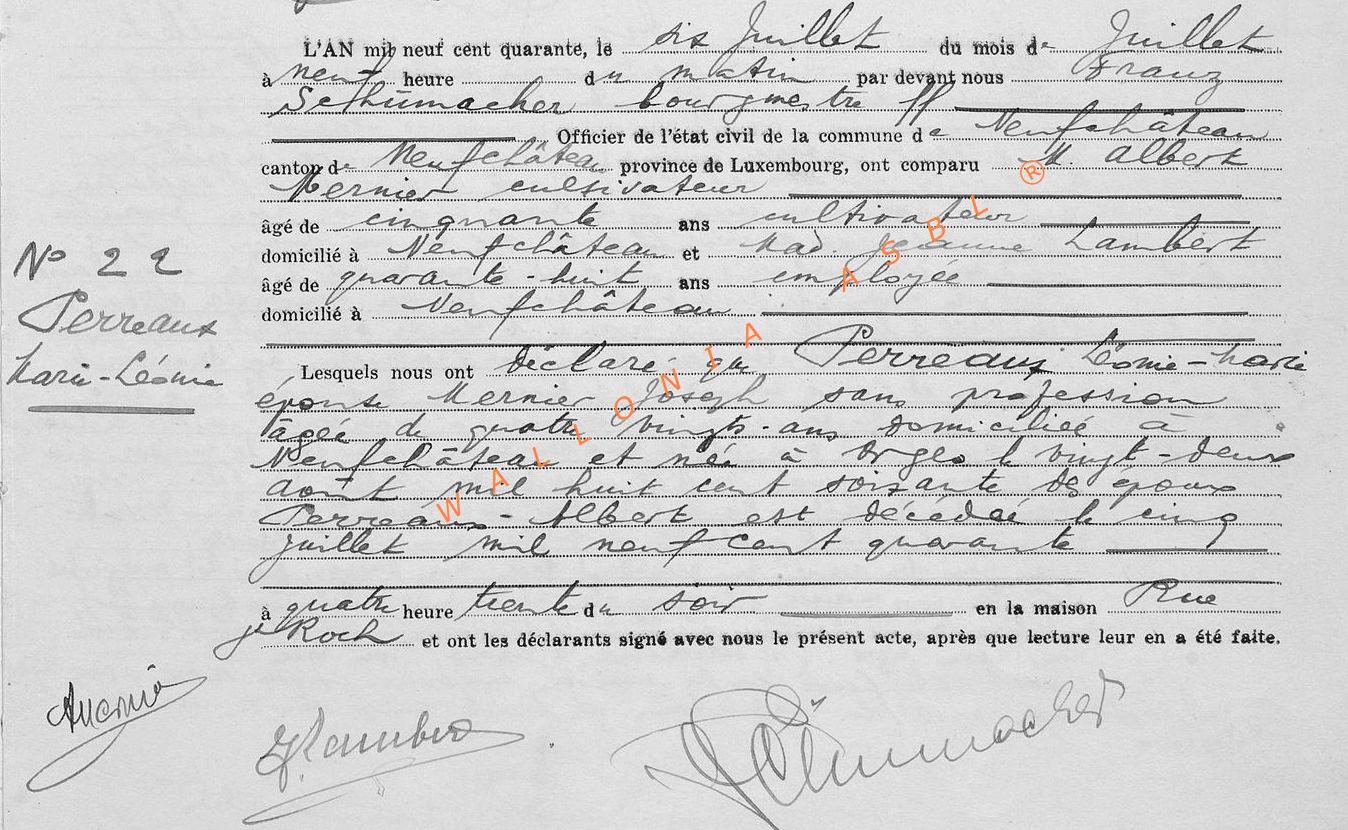 L'AN mil neuf cent quarante, le six Juillet du mois de Juillet
à neuf heure du matin par devant nous Franz
Schumacher bourgmestre ff
Officier de l'état civil de la commune de Neufchâteau
canton de Neufchâteau province de Luxembourg, ont comparu M. Albert
Mernier cultivateur
âgé de cinquante ans cultivateur
domicilié à Neufchâteau et Mad. Jeanne Lambert
âgé de quarante-huit ans employée
domicilié à Neufchâteau
Nº 22
Perreaux
Marie-Léonie
Lesquels nous ont déclaré que Perreaux Léonie-Marie
épouse Mernier Joseph sans profession
âgée de quatre vingts-ans domiciliée à
Neufchâteau et née à Orgeo le vingt-deux
août mil huit cent soixante des époux
Perreaux-Albert est décédée le cinq
juillet mil neuf cent quarante
à quatre heure trente du soir en la maison Rue
St Roch et ont les déclarants signé avec nous le présent acte, après que lecture leur en a été faite.
AMernier
JLambert
FSchumacher
WALLONIA ASBL ®